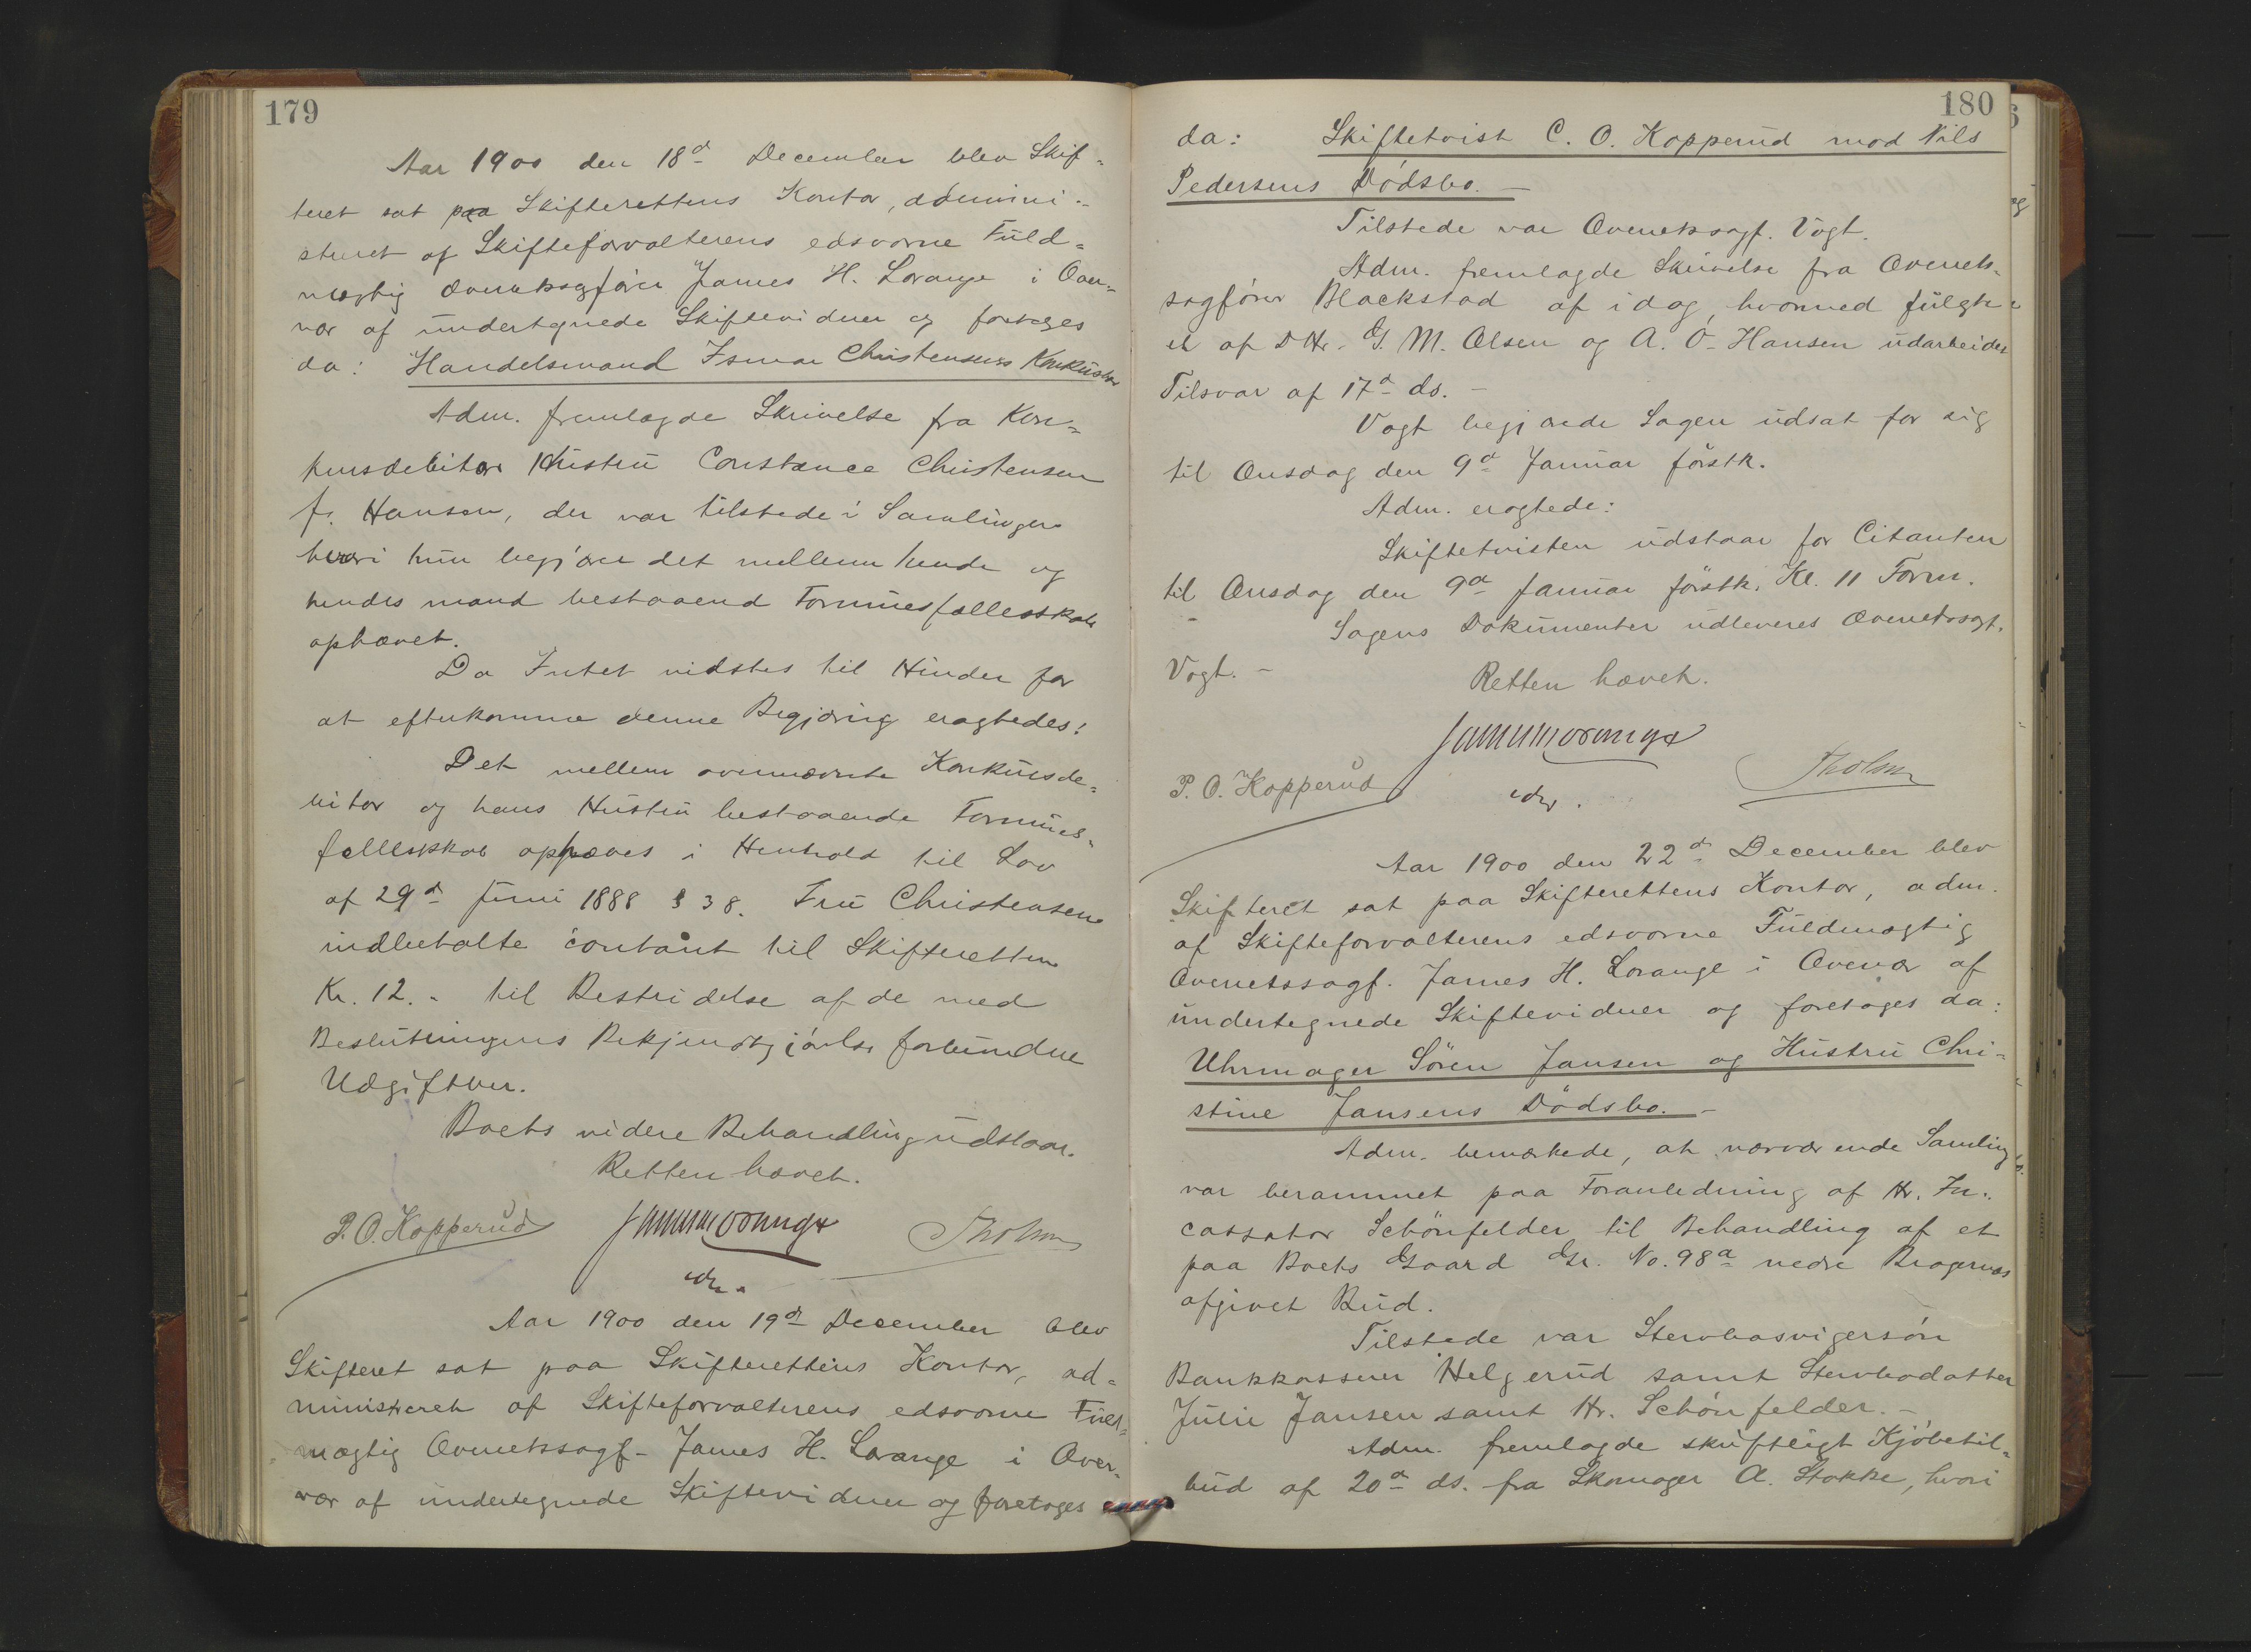 179
Aar 1900 den 18d December blev Skif-
teret sat paa Skifterettens Kontor, admini-
streret af Skifteforvalterens edsvorne Fuld-
mægtig Overretssagfører James H. Lorange i Over-
vær af undertegnede Skiftevidner og foretoges
da: Handelsmand Ismar Christensens Konkursbo
Adm. fremlagde Skrivelse fra Kon-
kursdebitors Hustru Constance Christensen
f. Hansen, der var tilstede i Samlingen
hvori hun begjærer det mellem hende og
hendes mand bestaaend Formuesfællesskab
ophævet.
Da Intet vidstes til Hinder for
at efterkomme denne Begjæring eragtedes:
Det mellem ovennævnte Konkursde-
bitor og hans Hustru bestaaende Formues-
fællesskab ophæves i Henhold til Lov
af 29d Juni 1888 § 38. Fru Christensen
indbetalte contant til Skifteretten
Kr. 12.- til Bestridelse af de med
Beslutningens Bekjendtgjørelse forbundne
Udgifter.
Boets videre Behandling udstaar.
Retten hævet.
P. O. Kopperud James Lorange Tholm
edsv.
Aar 1900 den 19d December blev
Skifteret sat paa Skifterettens Kontor, ad-
ministreret af Skifteforvalterens edsvorne Fuld-
mægtig Overretssagf. James H. Lorange i Over-
vær af undertegnede Skiftevidner og foretoges
180
da: Skiftetvist C. O. Kopperud mod Nils
Pedersens Dødsbo. -
Tilstede var Overretssagf. Vogt.
Adm. fremlagde Skrivelse fra Overrets-
sagfører Blackstad af idag, hvormed fulgte
et af DHr. G. M. Olsen og A. O. Hansen udarbeidet
Tilsvar af 17d ds. -
Vogt begjærede Sagen udsat for sig
til Onsdag den 9d Januar førstk.
Adm. eragtede:
Skiftetvisten udstaar for Citanten
til Onsdag den 9d Januar førstk. Kl. 11 Form.
Sagens Dokumenter udleveres Overretssagf.
Vogt. -
Retten hævet.
James Lorange
P. O. Kopperud edsv. Tholm
Aar 1900 den 22d December blev
Skifteret sat paa Skifterettens Kontor, adm.
af Skifteforvalterens edsvorne Fuldmægtig
Overretssagf. James H. Lorange i Overvær af
undertegnede Skiftevidner og foretoges da:
Uhrmager Søren Jansen og Hustru Chri-
stine Jansens Dødsbo. -
Adm. bemærkede, at nærværende Samling
var berammet paa Foranledning af Hr. In-
cassator Schönfelder til Behandling af et
paa Boets Gaard Gr. No. 98a nedre Bragernæs
afgivet Bud.
Tilstede var Stervbosvigersøn
Bankkasserer Helgerud samt Stervbodatter
Julie Jansen samt Hr. Schönfelder. -
Adm. fremlagde skriftligt Kjøbetil-
bud af 20d ds. fra Skomager A. Stokke, hvori